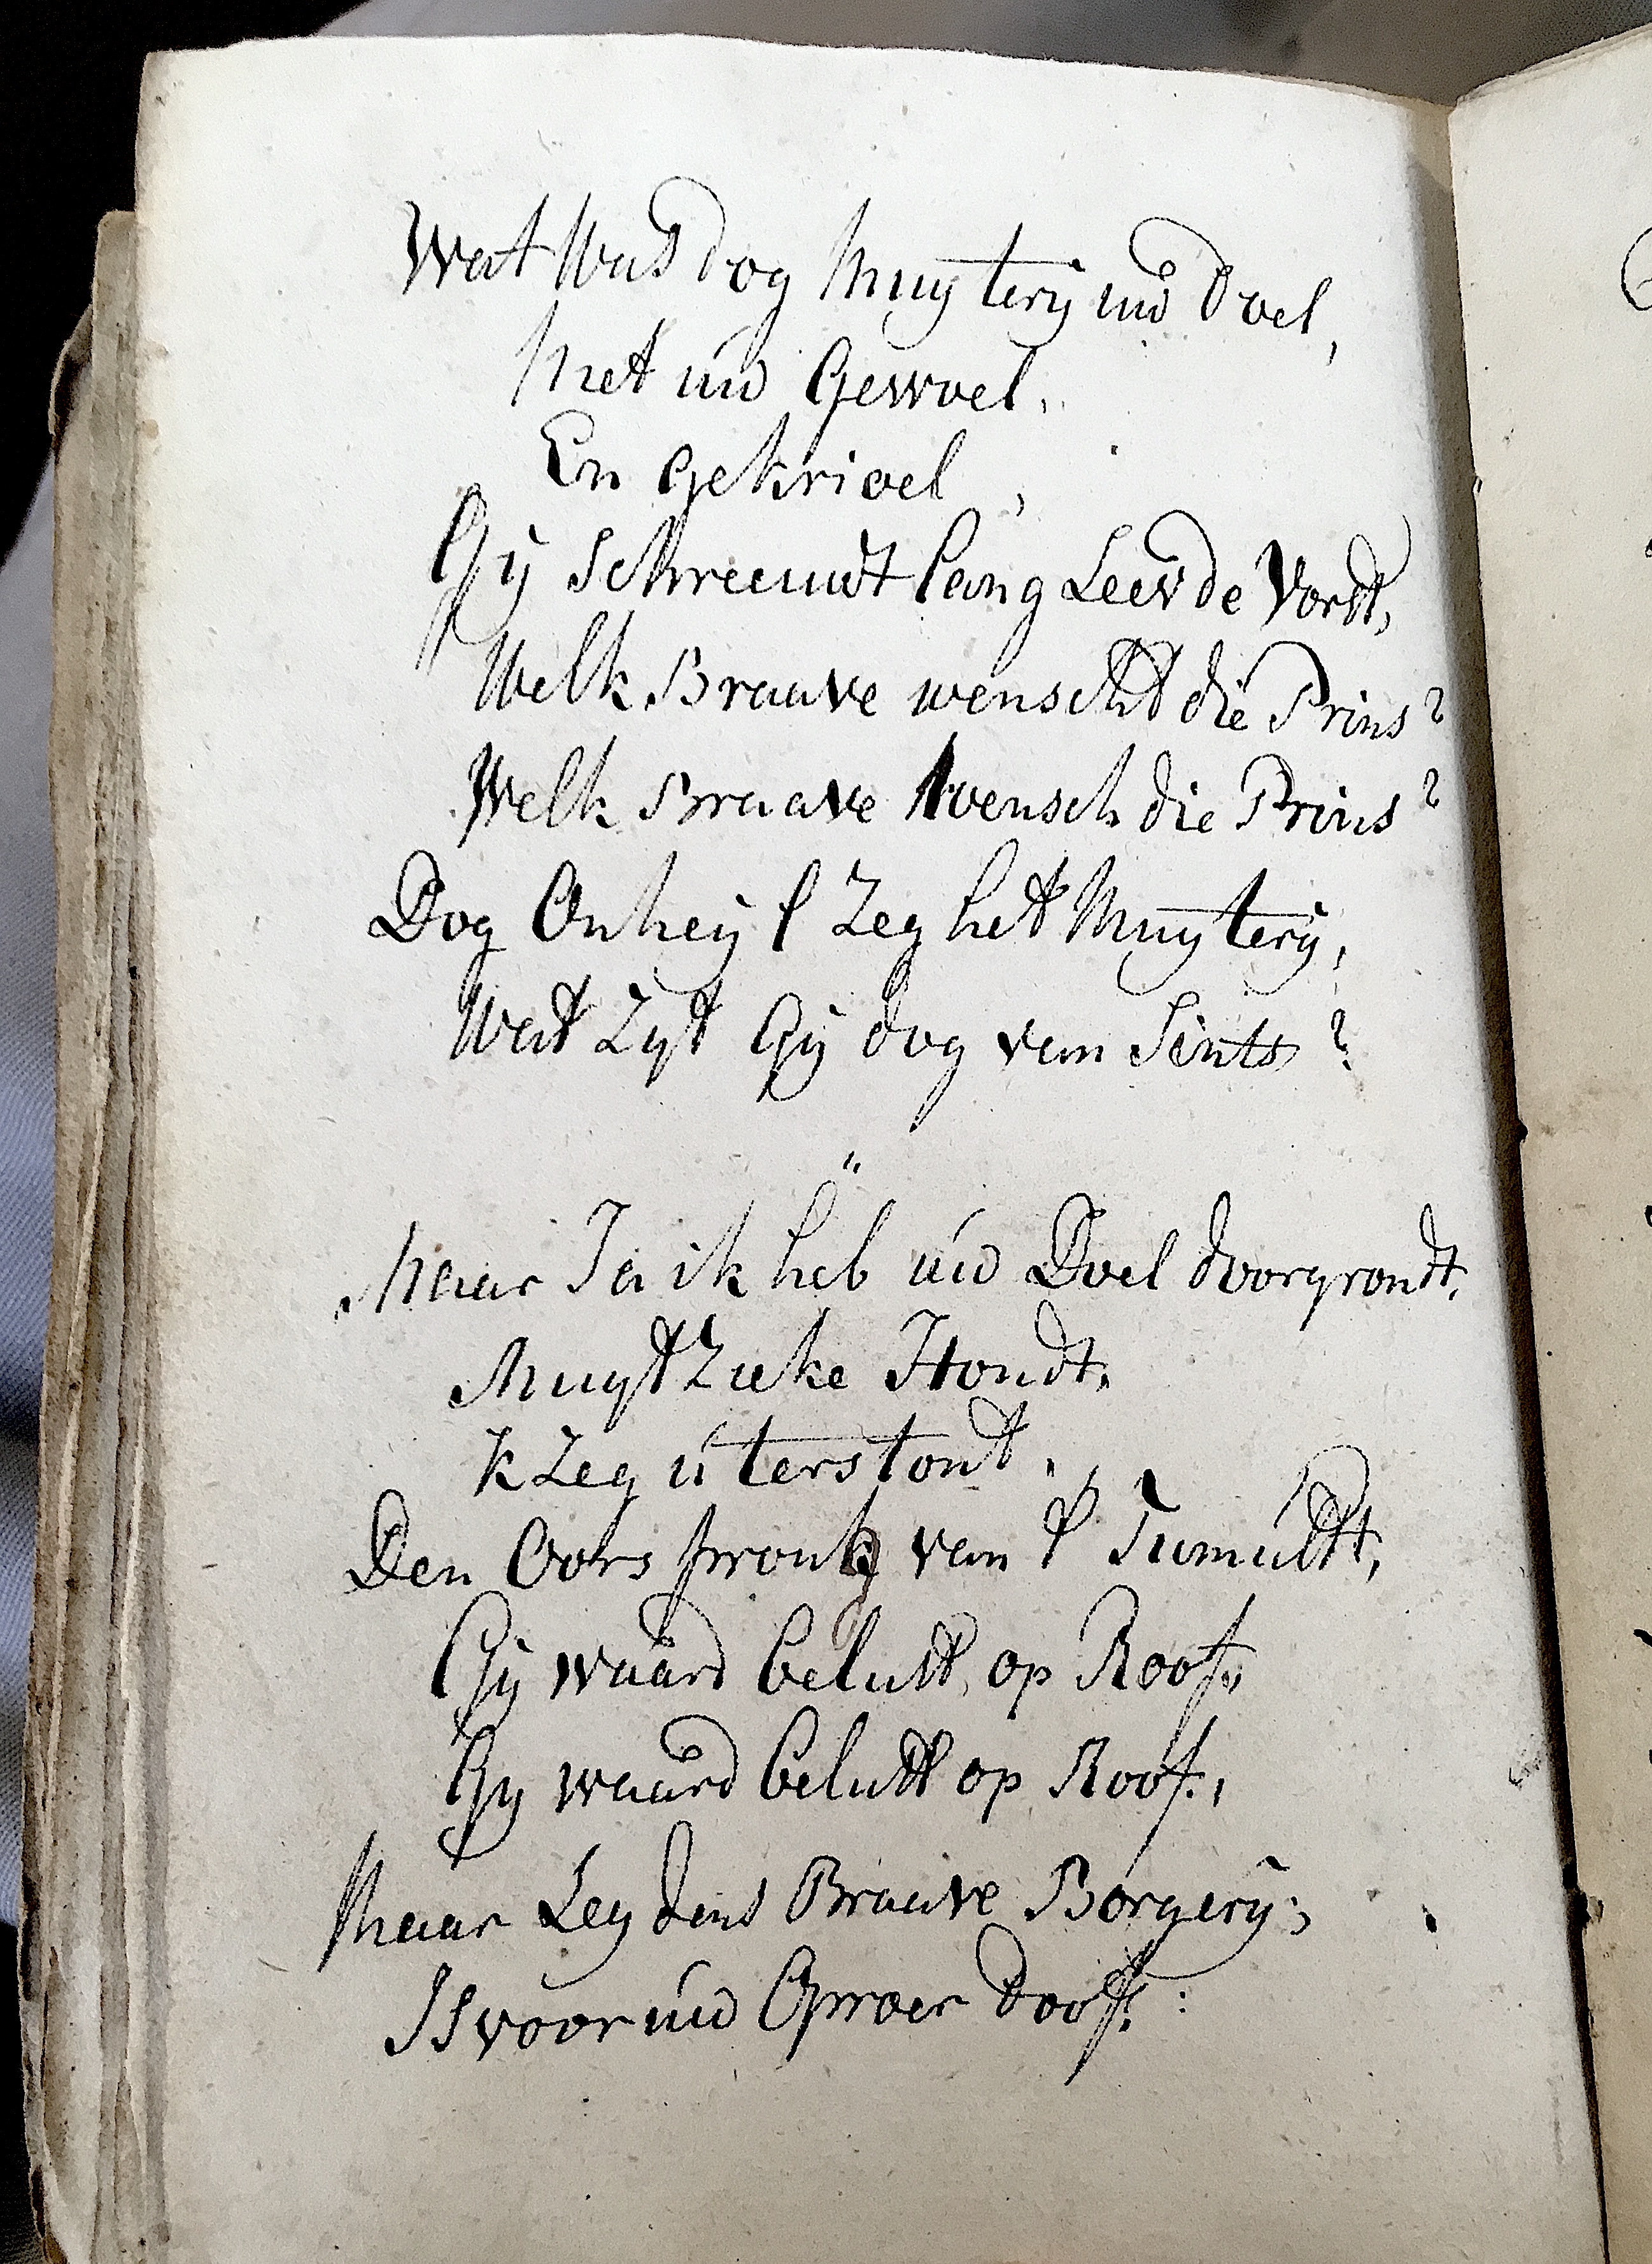 Wat Was dog Muytery uw Doel,
Met uw Gewoel,
En gekrioel,
Gy Schreeuwt lang Leev de Vorst,
Welk Braave wenscht die Prins?
Welk Braave Wensch die Prins?
Dog Onheyl Zeg het Muytery,
Wat Zyt Gy dog van Sints?
"
Maar Ja ik heb uw Doel doorgrondt,
Muyt Zieke Hondt,
K Zeg u terstond,
Den Oorspronk van 't Tumult,
Gy waard belust op Roof,
Gy waard belust op Roof,
Maar Leydens Braave Borgery,
Is voor uw Oproer doof: